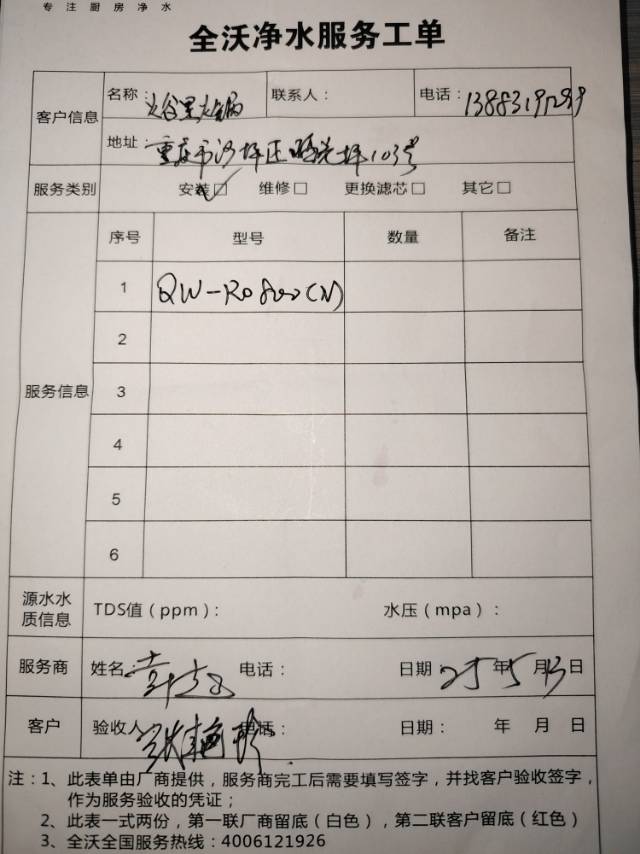 专注厨房净水
全沃净水服务工单
客户信息
名称 火锅
联系人：
电话：
地址：重庆市沙坪正 103号
服务类别 安装☑ 维修□ 更换滤芯□ 其它□
服务信息
序号 型号 数量 备注
1 QW-Ro800(N)
2
3
4
5
6
源水水质信息 TDS值（ppm）： 水压（mpa）：
服务商 姓名: 电话： 日期 25年5月13日
客户 验收人 电话： 日期： 年 月 日
注：1、此表单由厂商提供，服务商完工后需要填写签字，并找客户验收签字，
作为服务验收的凭证；
2、此表一式两份，第一联厂商留底（白色），第二联客户留底（红色）
3、全沃全国服务热线：4006121926